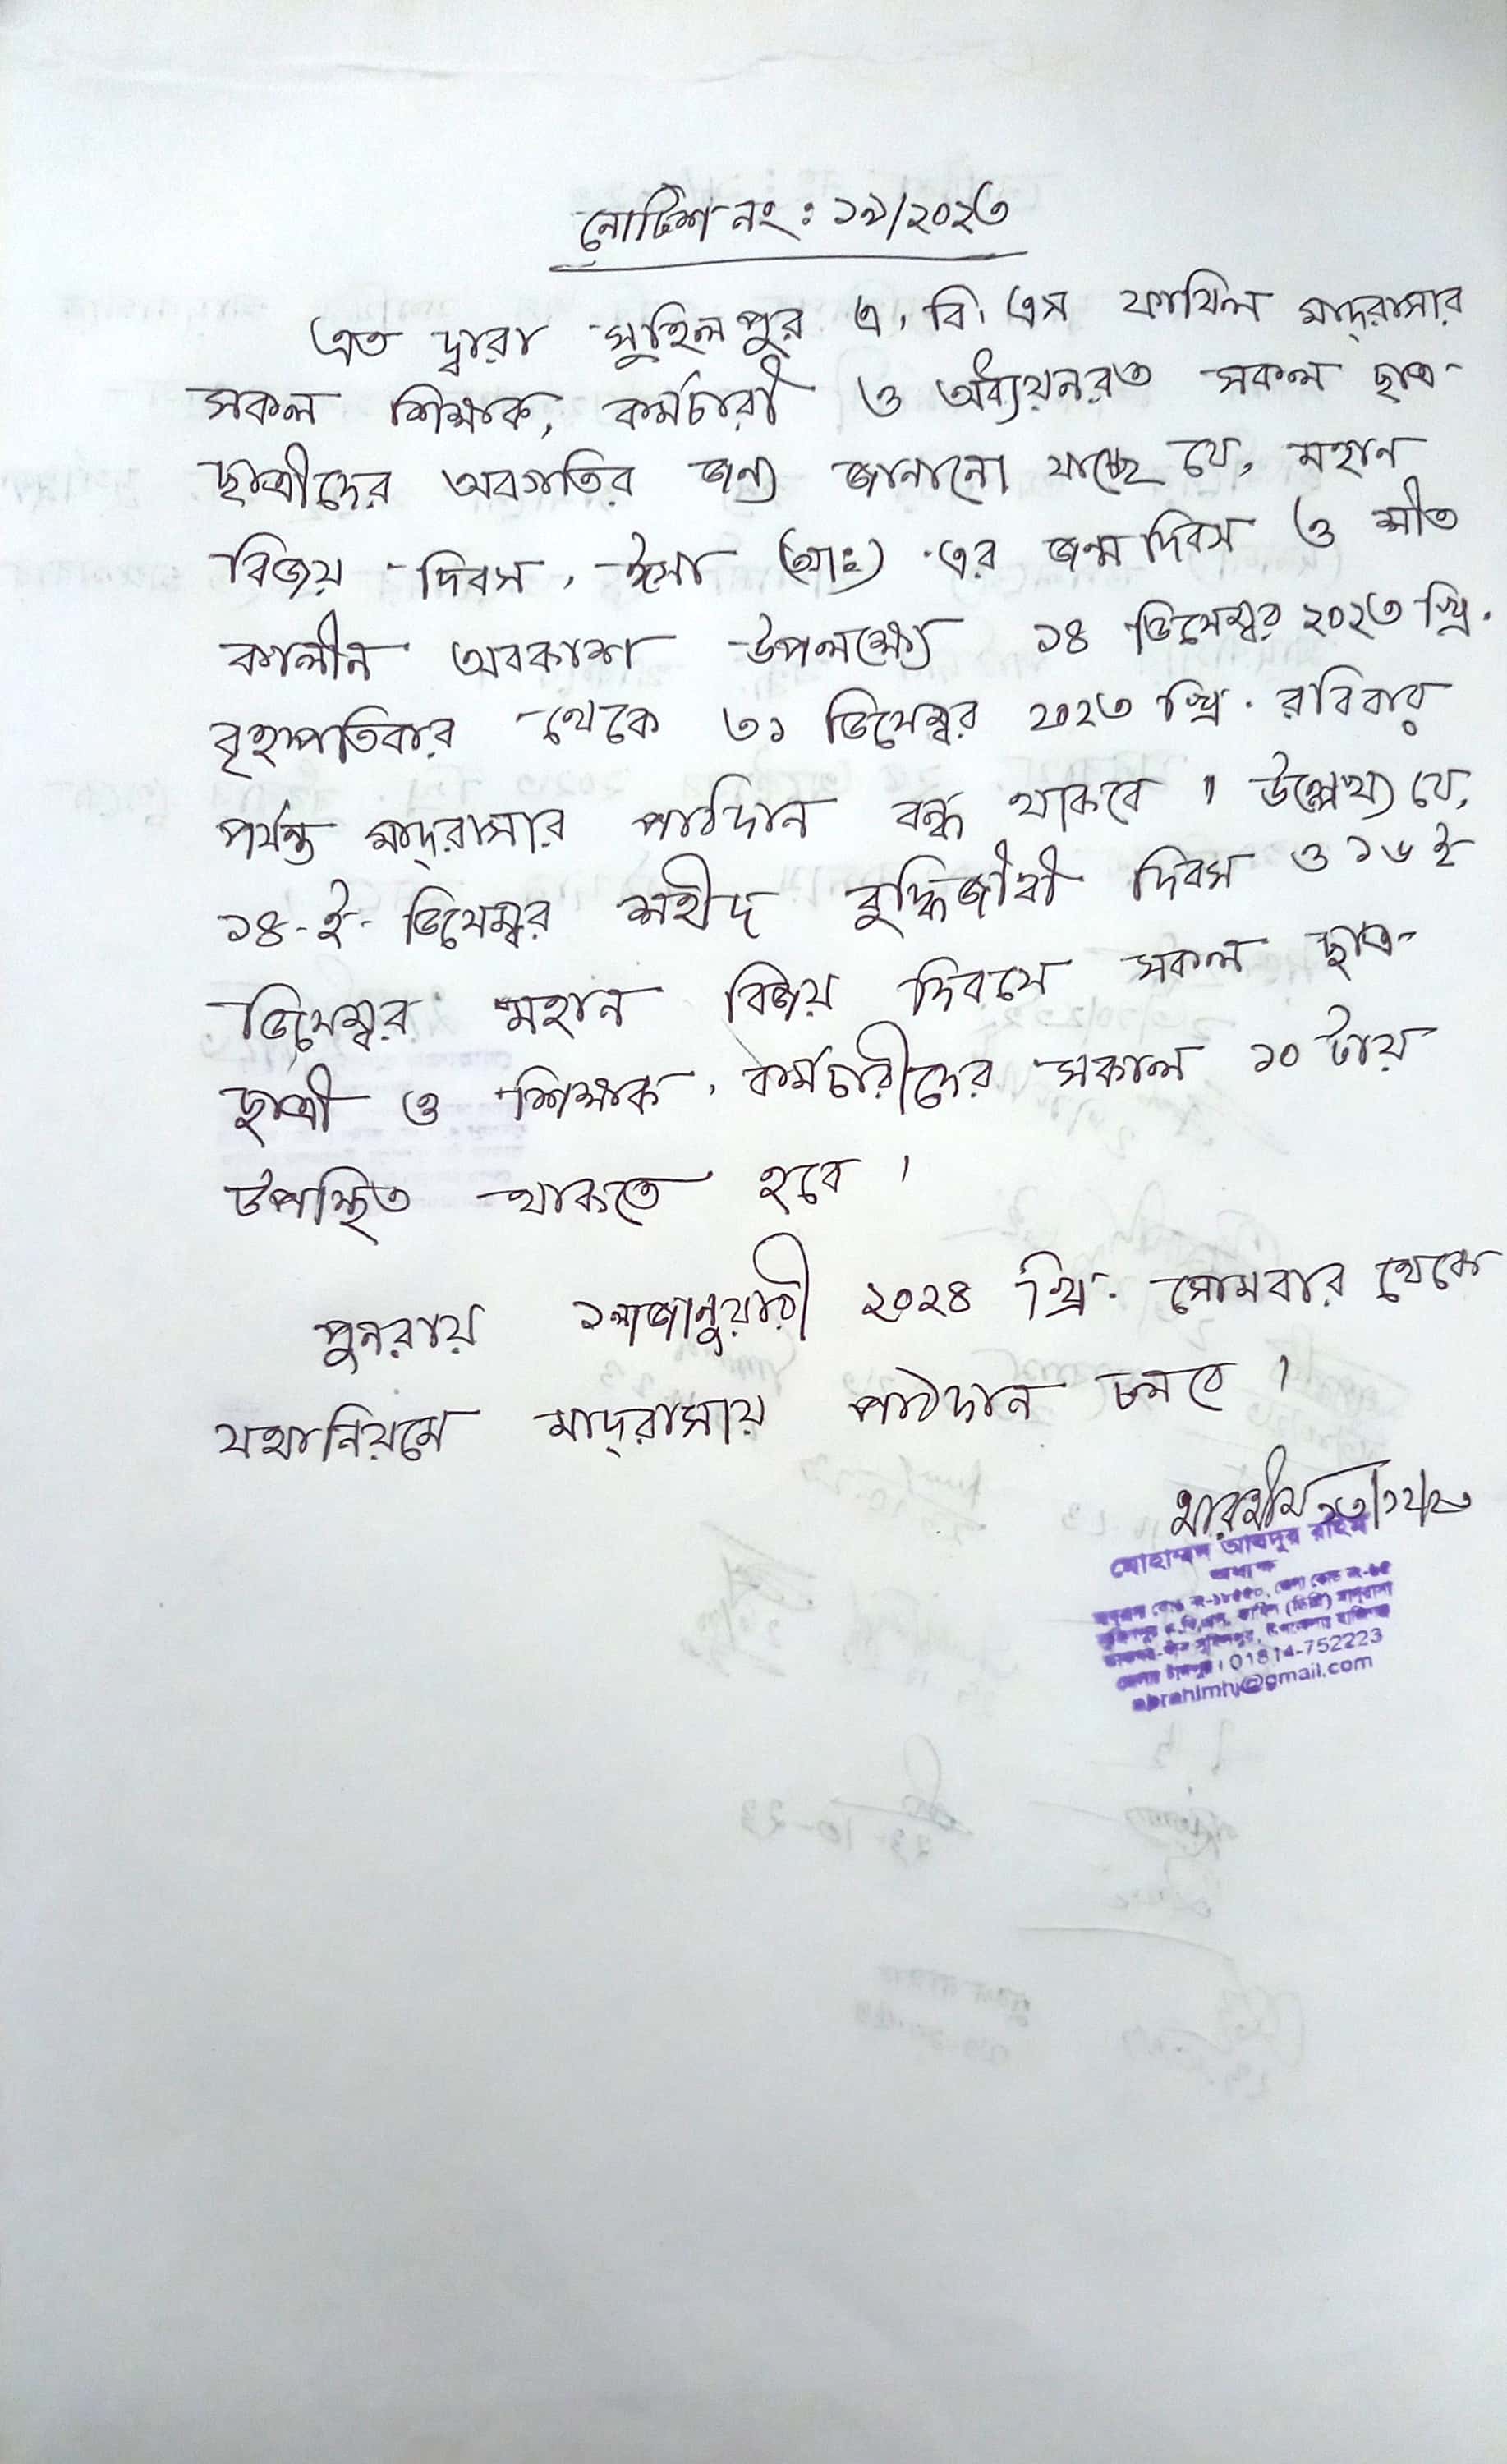 নোটিশ নং: ১৯/২০২৩
এত দ্বারা সুহিলপুর এ. বি. এস ফাযিল মাদ্‌রাসার
সকল শিক্ষক, কর্মচারী ও অধ্যয়নরত সকল ছাত্র-
ছাত্রীদের অবগতির জন্য জানানো যাচ্ছে যে, মহান
বিজয় দিবস, ঈসা (আঃ) এর জন্মদিবস ও শীত
কালীন অবকাশ উপলক্ষ্যে ১৪ ডিসেম্বর ২০২৩ খ্রি.
বৃহস্পতিবার থেকে ৩১ ডিসেম্বর ২০২৩ খ্রি. রবিবার
পর্যন্ত মাদ্‌রাসার পাঠদান বন্ধ থাকবে। উল্লেখ্য যে,
১৪-ই-ডিসেম্বর শহীদ বুদ্ধিজীবী দিবস ও ১৬ ই
ডিসেম্বর মহান বিজয় দিবসে সকল ছাত্র-
ছাত্রী ও শিক্ষক, কর্মচারীদের সকাল ১০ টায়
উপস্থিত থাকতে হবে।
পুনরায় ১লা জানুয়ারী ২০২৪ খ্রি. সোমবার থেকে
যথানিয়মে মাদ্‌রাসায় পাঠদান চলবে।
মোহাম্মদ আবদুর রহিম
অধ্যক্ষ
01814-752223
@gmail.com